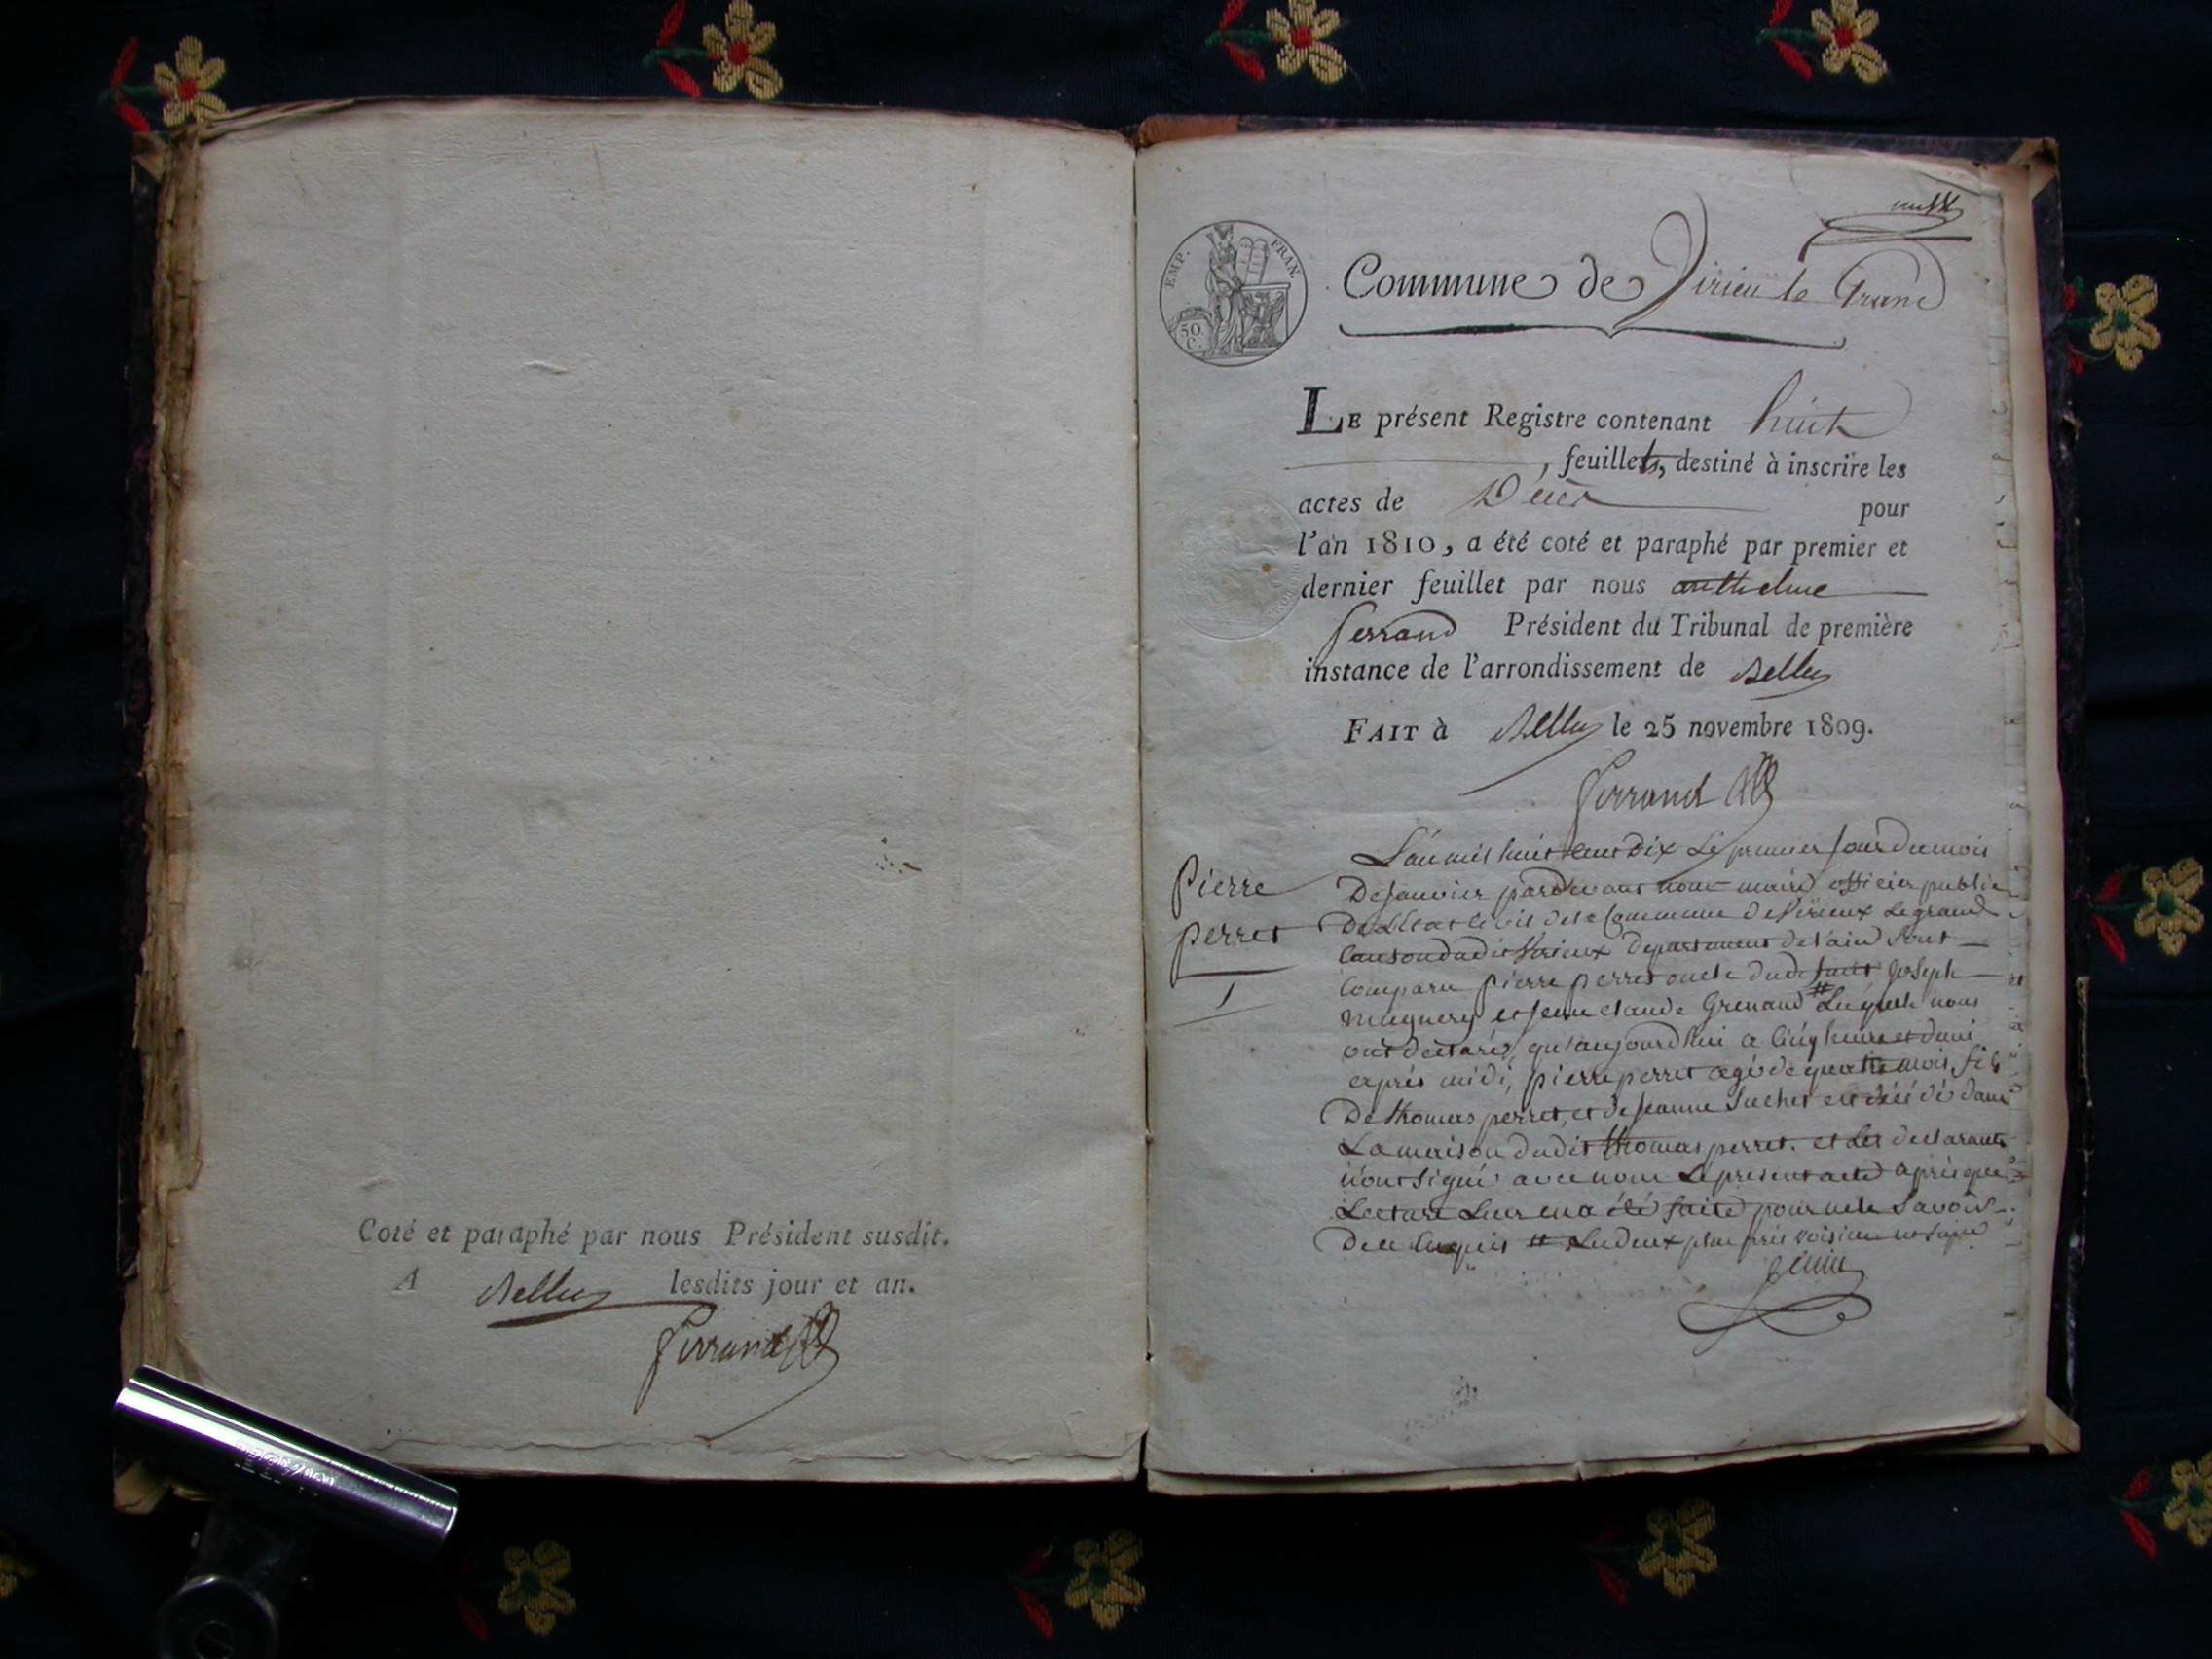 Coté et paraphé par nous Président susdit.
A Belley lesdits jour et an.
Ferrand
EMP. FRAN.
50.
C.
Commune de Virieu le Grand
LE présent Registre contenant huit
, feuillets, destiné à inscrire les
actes de Décès pour
l'an 1810, a été coté et paraphé par premier et
dernier feuillet par nous anthelme
ferrand Président du Tribunal de première
instance de l'arrondissement de Belley
FAIT à Belley le 25 novembre 1809.
Ferrand
Pierre
perret
1
L'an mil huit cent dix Le premier Jour du mois
De Janvier pardevant nous maire officier public
De L'Etat Civil de la Commune de Virieux Le grand
Canton dudit Virieux Departement de l'ain Sont
Comparu pierre perret oncle du defunt Joseph
Mugnery et Jean Claude Grenand # Lesquels nous
ont declaré, qu'aujourd'hui a Cinq heures et demi
après midi, pierre perret agé de quatre mois, fils
De thomas perret, et de Jeanne Suchet est décédé dans
La maison dudit thomas perret. et Les declarants
n'ont Signé avec nous Le present acte après que
Lecture Leur en a été faite pour ne le Savoir
De ce Enquis # Les deux plus près voisins